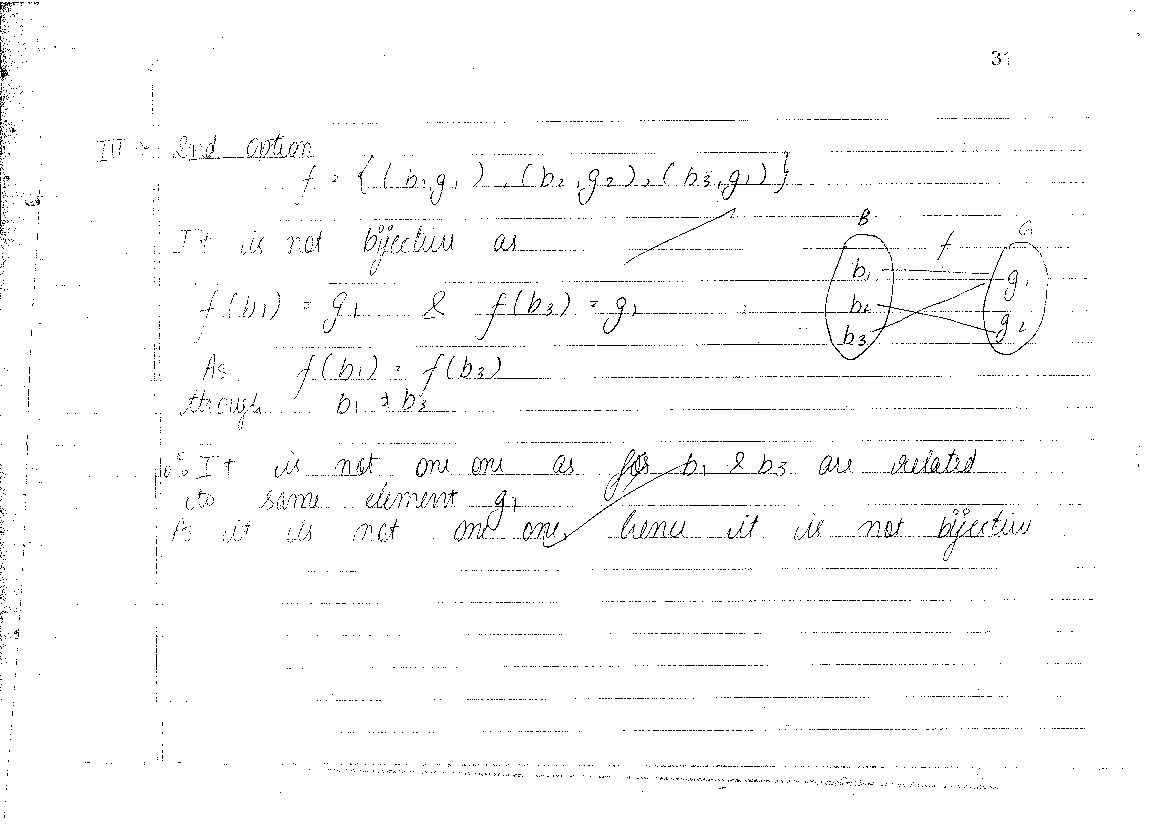 31
III → 2nd option
f = { (b1,g1), (b2,g2), (b3,g1) }
It is not bijective as
f(b1) = g1 & f(b3) = g1
As f(b1) = f(b3)
through b1 ≠ b3
∴ It is not one one as for b1 & b3 are related
to same element g1
As it is not one one, hence it is not bijective
B f G
b1 g1
b2 g2
b3